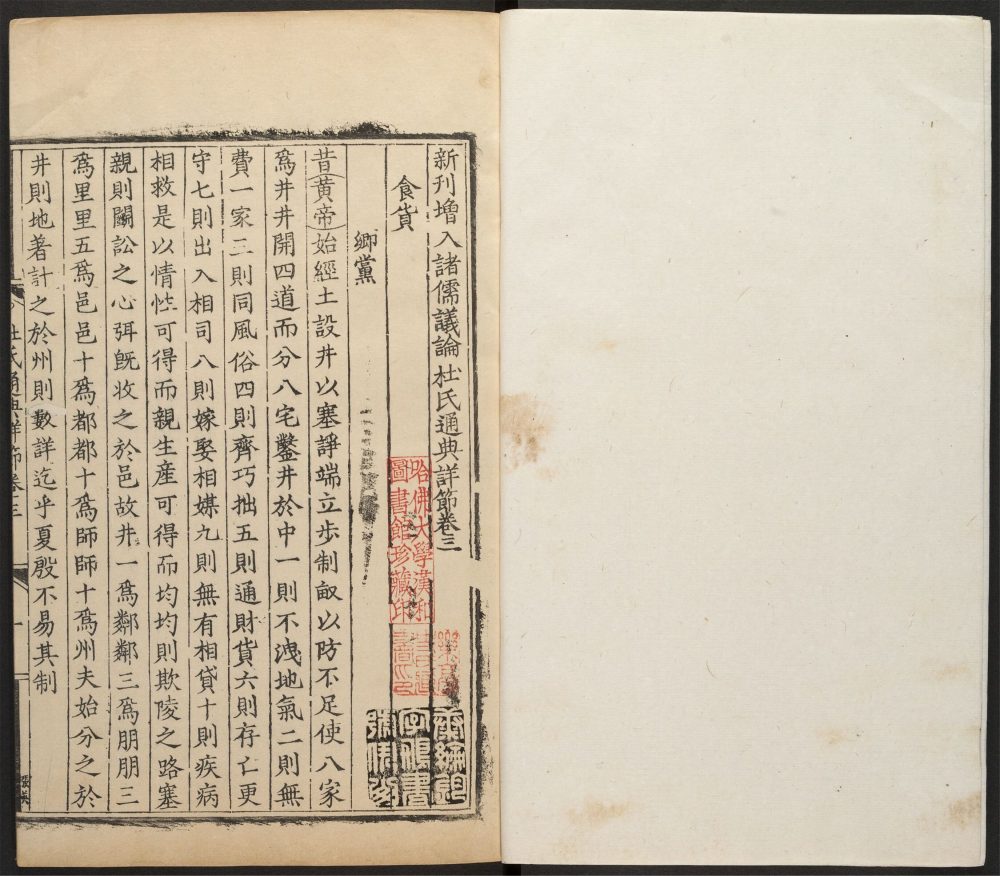 新刊增入諸儒議論杜氏通典詳節卷三
食貨
鄉黨
昔黃帝始經土設井以塞諍端立步制畝以防不足使八家
爲井井開四道而分八宅鑿井於中一則不洩地氣二則無
費一家三則同風俗四則齊巧拙五則通財貨六則存亡更
守七則出入相司八則嫁娶相媒九則無有相貸十則疾病
相救是以情性可得而親生產可得而均均則欺陵之路塞
親則鬭訟之心弭旣牧之於邑故井一爲鄰鄰三爲朋朋三
爲里里五爲邑邑十爲都都十爲師師十爲州夫始分之於
井則地著計之於州則數詳迄乎夏殷不易其制
杜氏通典詳節卷三
一
哈佛大學漢和
圖書館珍藏印